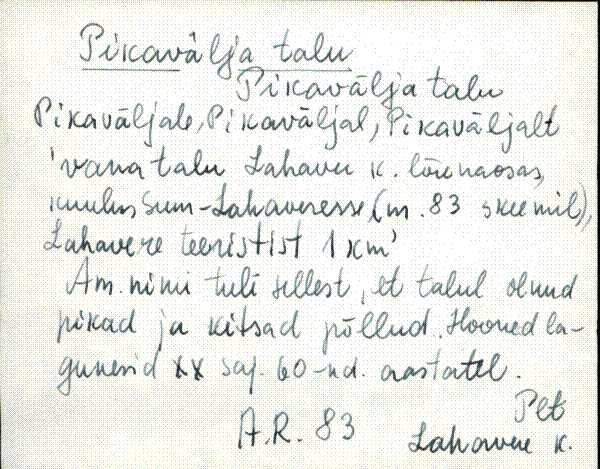 Pikavälja talu
Pikavälja talu
Pikaväljale, Pikaväljal, Pikaväljalt
'vana talu Lahavere k. lõunaosas,
kuulus Suur-Lahaveresse, (m. 83 skeemil),
Lahavere teeristist 1 km'
Am. nimi tuli sellest, et talul olnud
pikad ja kitsad põllud. Hooned la-
gunesid XX saj. 60-nd. aastatel.
Plt
A.R. 83 Lahavere k.